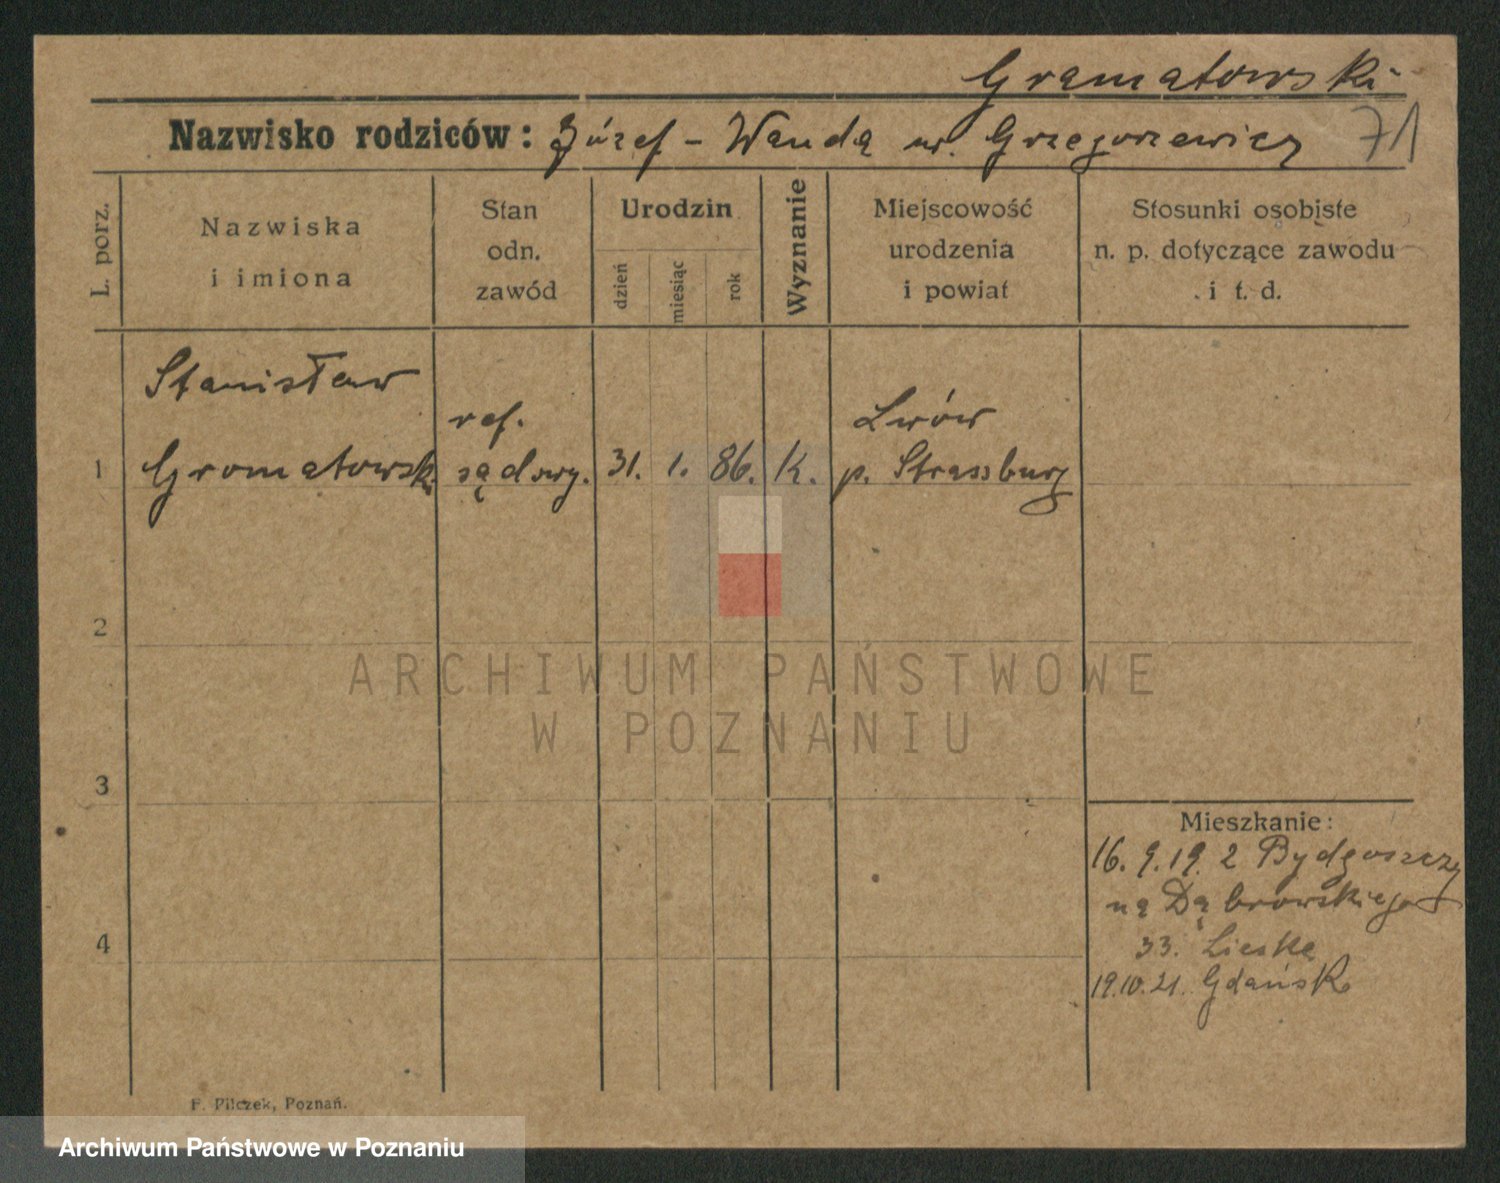 Gramatowski
Nazwisko rodziców: Józef – Wanda ur. Grzegorzewicz 71
L. porz.
Nazwiska
i imiona
Stan
odn.
zawód
Urodzin
dzień
miesiąc
rok
Wyznanie
Miejscowość
urodzenia
i powiat
Stosunki osobiste
n. p. dotyczące zawodu
i t. d.
Stanisław
ref.
Lwów
1 Gromatowski sądowy. 31. 1. 86. K. p. Strassburg
2
ARCHIWUM PAŃSTWOWE
W POZNANIU
3
Mieszkanie:
16. 9. 19. z Bydgoszczy
na Dąbrowskiego
33. Lieske
4
19.10.21. Gdańsk
F. Pilczek, Poznań.
Archiwum Państwowe w Poznaniu